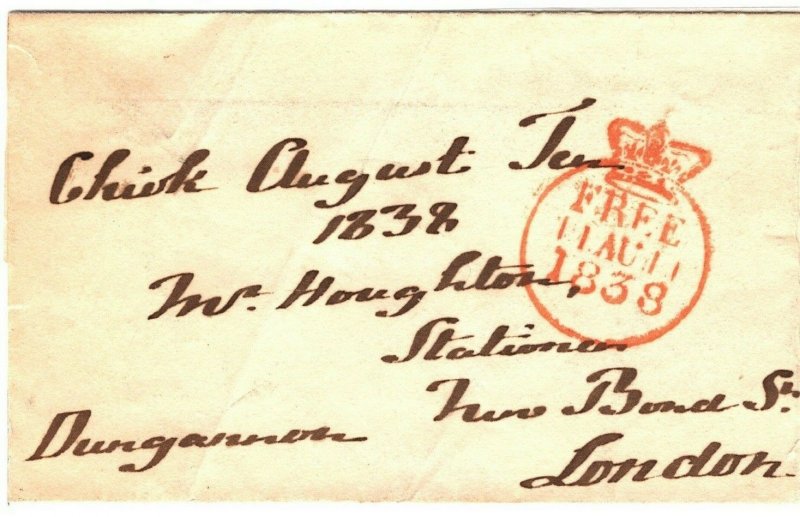 Chirk August Ten
1838
Mr. Houghton,
Stationer
New Bond St.
London.
Dungannon
FREE
11 AU 11
1838